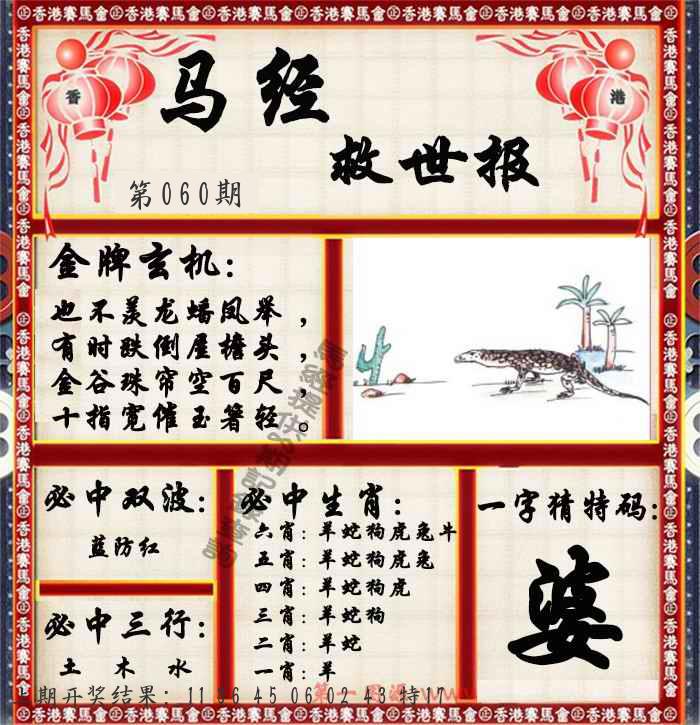 香港賽馬會
香
港
马经
救世报
第060期
金牌玄机:
也不羡龙蟠凤举，
有时跌倒屋檐头，
金谷珠帘空百尺，
十指宽催玉箸轻。
必中双波:
蓝防红
必中三行:
土 木 水
必中生肖:
六肖:羊蛇狗虎兔牛
五肖:羊蛇狗虎兔
四肖:羊蛇狗虎
三肖:羊蛇狗
二肖:羊蛇
一肖:羊
一字猜特码:
婆
期开奖结果:11 36 45 06 02 43 特17
第一图源